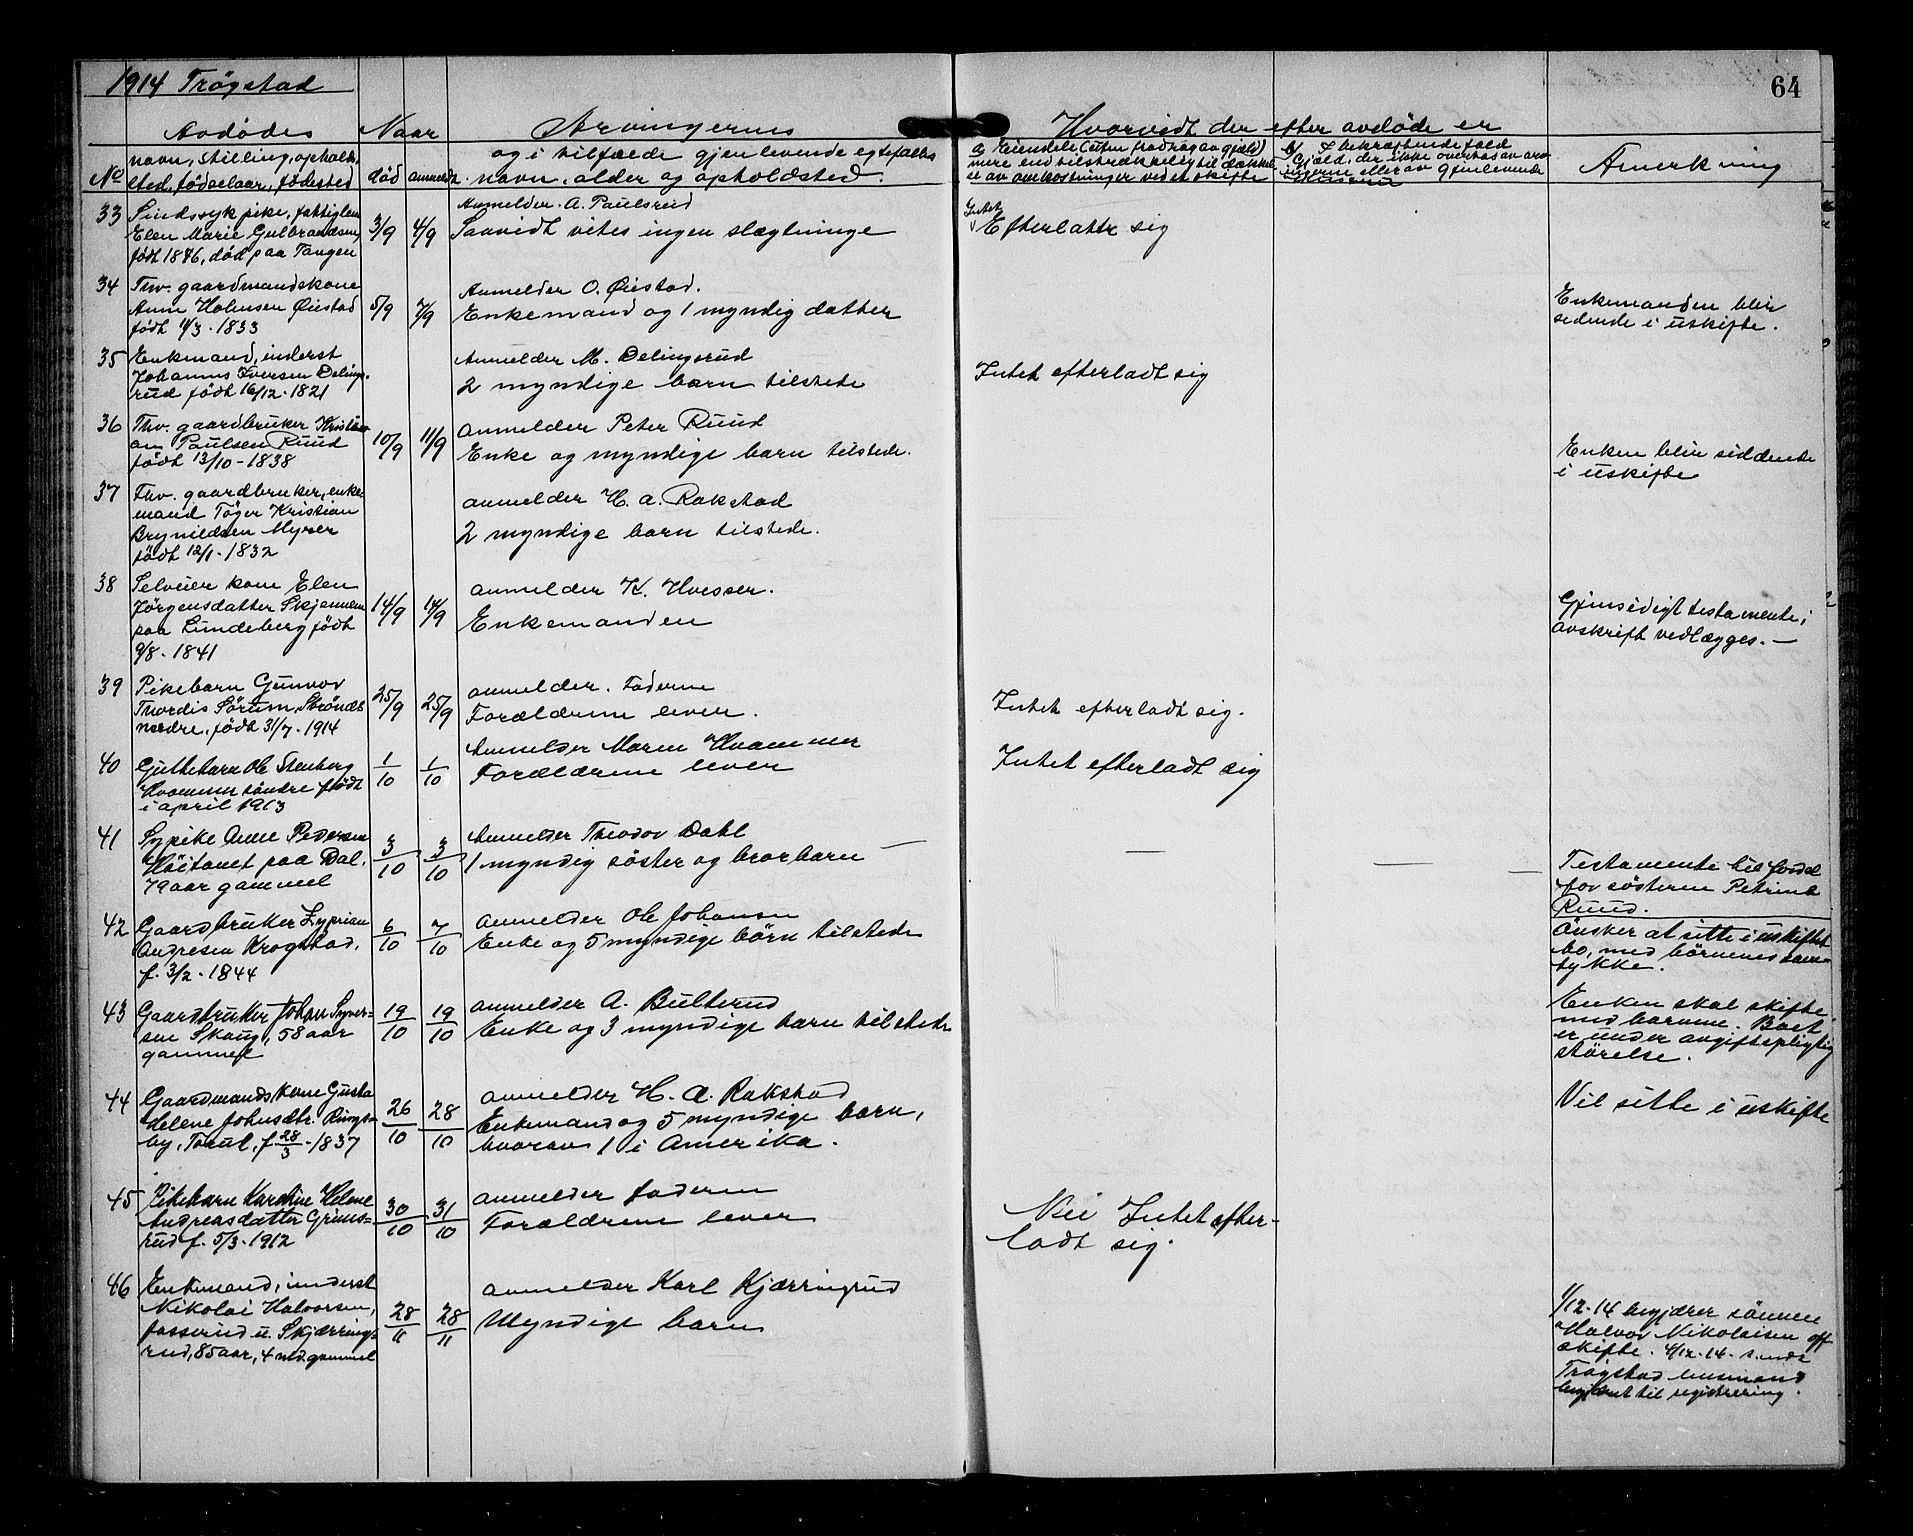 1914 Trøgstad
64
Avdødes
Naar
Arvingernes
Hvorvidt der efter avdøde er
No
navn, stilling, opholds-
sted, fødselaar, fødested
død
anmeldt.
og i tilfælde gjenlevende egtefælles
navn, alder og opholdsted.
a, Eiendele (uten fradrag av gjæld)
mere end tilstrækkelig til dække-
se av omkostninger ved et skifte
b, I bekræftende fald
Gjæld, der ikke overtas av arv-
ingerne eller av gjenlevende
Anmerkning
33
Sindssyk pike, fattiglem
Elen Marie Gulbrandsen,
født 1846, død paa Tangen
3/9
4/9
Anmelder. A. Paulsrud
Saavidt vites ingen slægtninge
Intet
Efterlatt sig
34
Fhv. gaardmandskone
Anne Holmsen Øiestad
født 4/3 - 1833
5/9
7/9
Anmelder O. Øiestad.
Enkemand og 1 myndig datter
Enkemanden blir
sedende i uskifte.
35
Enkmand, inderst
Johannes Iversen Delings-
rud født 16/12 - 1821
Anmelder M. Delingsrud
2 myndige barn tilstede
Intet efterladt sig
36
Fhv. gaardbruker Kristi-
an Paulsen Ruud
født 13/10 - 1838
10/9
11/9
anmelder Peter Ruud
Enke og myndige barn tilstede.
Enken blir siddende
i uskifte
37
Fhv. gaardbruker, enke-
mand Tøger Kristian
Brynildsen Myrer
født 12/1 - 1832
anmelder H. A. Rakstad
2 myndige barn tilstede.
38
Selveier kone Elen
Jørgensdatter Skjennem
paa Lundeberg født
9/8 - 1841
14/9
14/9
anmelder K. Huesser.
Enkemanden
Gjensidigt testamente i
avskrift vedlægges. —
39
Pikebarn Gunvor
Thordis Sørum, Strønds
nedre, født 31/7 - 1914
25/9
25/9
anmelder. Faderne
Forældrene lever.
Intet efterladt sig.
40
Guttebarn Ole Stenberg
Hvammer søndre født
i april 1913
1/10
1/10
Anmelder Maren Hvammer
Forældrene lever
Intet efterladt sig
41
Sypike Anne Pedersen
Høitomt paa Dal,
79 aar gammel
3/10
3/10
Anmelder Theodor Dahl
1 myndig søster og brorbarn —
—
—
—
Testamente til fordel
for søsteren Petrine
Ruud.
42
Gaardbruker Zyprian
Andresen Krogstad,
f. 3/2 - 1844
6/10
7/10
anmelder Ole Johansen
Enke og 5 myndige børn tilstede
Ønsker at sitte i uskiftet
bo, med børnenes sam-
tykke.
43
Gaardbruker Johan Syver-
sen Skaug, 58 aar
gammel
19/10
19/10
anmelder A. Bulterud
Enke og 3 myndige barn tilstede
Enken skal skifte
med barnene. Boet
er under avgiftspligtig
størelse.
44
Gaardmandskone Gusta
Helene Johnsdtr. Rings-
by, Torut, f. 28/3 - 1837
26/10
28/10
anmelder H. A. Rakstad
Enkemand og 5 myndige barn,
hvorav 1 i Amerika.
Vil sitte i uskifte
45
Pikebarn Karoline Helene
Andreasdatter Grims-
rud f. 5/3 - 1912
30/10
31/10
anmelder faderen
Forældrene lever
Nei Intet efter-
ladt sig.
46
Enkemand, inderst
Nikolai Halvorsen,
Fosserud u. Skjærring-
rud, 85 aar, 4 mdr. gammel
28/11
28/11
anmelder Karl Kjærringrud
Myndige barn
1/12-14 begjærer sønnen
Halvor Nikolaisen off.
skifte. 4/12-14. sendt
Trøgstad lensmand
begjæret til registrering.